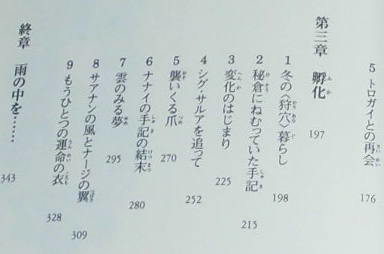 5 トロガイとの再会 176
第三章 孵化 197
1 冬の〈狩穴〉暮らし 198
2 秘倉にねむっていた手記 215
3 変化のはじまり 225
4 シグ・サルアを追って 252
5 襲いくる爪 270
6 ナナイの手記の結末 280
7 雲のみる夢 295
8 サアナンの風とナージの翼 309
9 もうひとつの運命の衣 328
終章 雨の中を…… 343